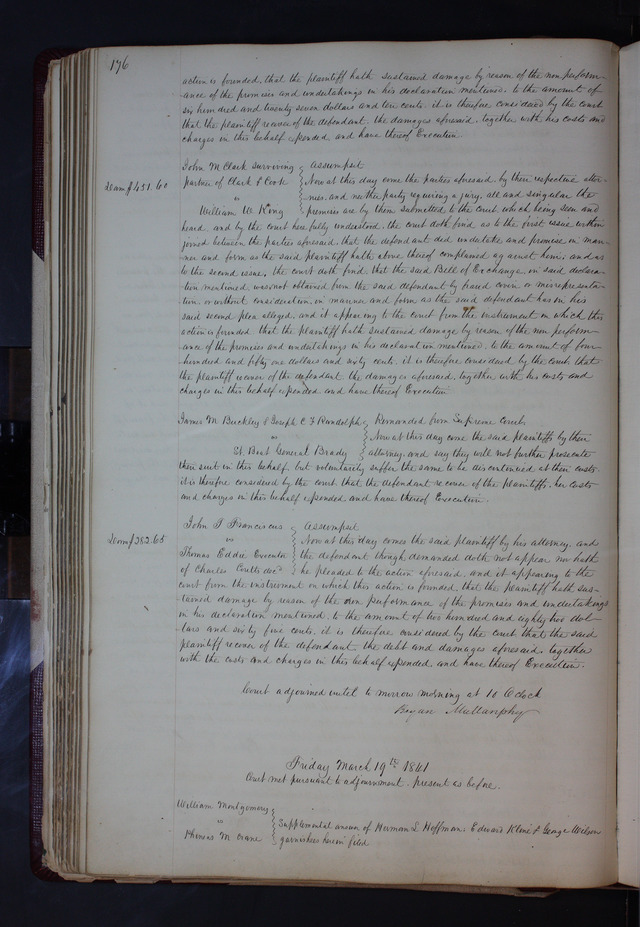 196
action is founded, that the plaintiff hath sustained damage by reason of the non perform-
ance of the promises and undertakings in his declaration mentioned, to the amount of
six hundred and twenty seven dollars and ten cents. it is therefore considered by the court
that the plaintiff recover of the defendant the damages aforesaid, together with his costs and
charges in this behalf expended, and have thereof Execution
John M Clark surviving
partner of Clark & Cook
vs
William W King
Dam $451.60
Assumpsit
Now at this day come the parties aforesaid, by their respective attor-
nies, and neither party requiring a jury, all and singular the
premises are by them submitted to the court, which being seen and
heard, and by the court here fully understood, the court doth find as to the first issue within
joined between the parties aforesaid, that the defendant did undertake and promise, in man-
ner and form as the said plaintiff hath above thereof complained against him; and as
to the second issue, the court doth find, that the said Bill of Exchange, in said declara-
tion mentioned, was not obtained from the said defendant by fraud covin or misrepresenta-
tion, or without consideration, in manner and form as the said defendant has in his
said second plea alleged, and it appearing to the court from the instrument on which this
action is founded that the plaintiff hath sustained damage by reason of the non perform-
ance of the promises and undertakings in his declaration mentioned, to the amount of four
hundred and fifty one dollars and sixty cents, it is therefore considered by the court that
the plaintiff recover of the defendant the damages aforesaid, together with his costs and
charges in this behalf expended and have thereof Execution
James M Buckley & Joseph C F Randolph
vs
St. Boat General Brady
Remanded from Supreme Court
Now at this day come the said plaintiffs by their
attorney, and say they will not further prosecute
their suit in this behalf, but voluntarily suffer the same to be discontinued at their costs.
it is therefore considered by the court, that the defendant recover of the plaintiffs, her costs
and charges in this behalf expended, and have thereof Execution
John T Franciscus
vs
Thomas Eddie Executor
of Charles Coutts decd
Dam $282.65
Assumpsit
Now at this day comes the said plaintiff by his attorney, and
the defendant though demanded doth not appear nor hath
he pleaded to the action aforesaid, and it appearing to the
court from the instrument on which this action is founded, that the plaintiff hath sus-
tained damage by reason of the non performance of the promises and undertakings
in his declaration mentioned, to the amount of two hundred and eighty two dol-
lars and sixty five cents. it is therefore considered by the court that the said
plaintiff recover of the defendant the debt and damages aforesaid, together
with the costs and charges in this behalf expended, and have thereof Execution.
Court adjourned until to morrow morning at 10 O'clock
Bryan Mullanphy
Friday March 19th 1841
Court met pursuant to adjournment. present as before.
William Montgomery
vs
Phineas M Crane
Supplemental answer of Herman L Hoffman, Edward Kline & George Wilson
garnishees herein filed